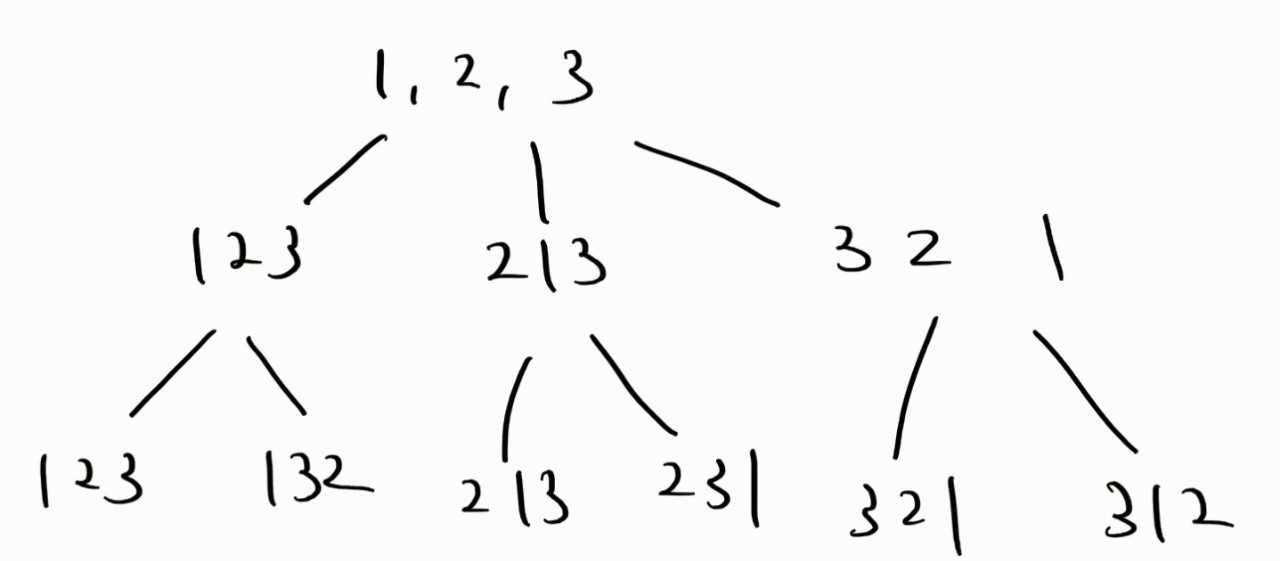 1, 2, 3
123 213 3 2 1
123 132 213 231 321 312